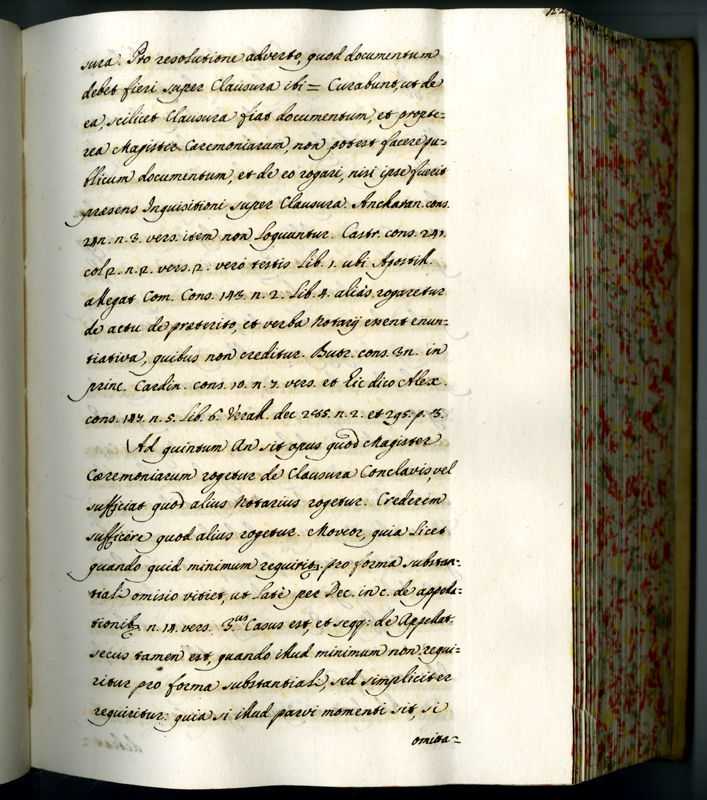 sura. Pro resolutione adverto, quod documentum
debet fieri super Clausura ibi = Curabunt, ut de
ea, scilicet Clausura fiat documentum, et propte=
rea Magister Ceremoniarum, non potest facere pu=
blicum documentum, et de eo rogari, nisi ipse fuerit
præsens Inquisitioni super Clausura. Ancharan. cons.
n. 3. vers. item non loquuntur. Castr. cons. 241.
col. 2. n. 2. vers. 2. vero testis Lib. 1. ubi
allegat Com. Cons. 143. n. 2. Lib. 4. aliàs rogaretur
de actu de præterito, et verba Notarij essent enun=
tiativa, quibus non creditur. Butr. cons. in
princ. Cardin. cons. 10. n. 7. vers. et dico Alex.
cons. 147. n. 5. Lib. 6. Verall. dec. 285. n. 2. et 295. p. 3.
Ad quintum An sit opus quod Magister
Cæremoniarum rogetur de Clausura Conclavis, vel
sufficiat quod alius Notarius rogetur. Crederem
sufficere quod alius rogetur. Moveor, quia licet
quando quid minimum requirit. pro forma substan=
tiali omisio vitiet, ut latè per Dec. in c. de appella=
tionib. n. 14. vers. 3.us Casus est, et seqq: de Appellat.
secus tamen est, quando illud minimum non requi=
ritur pro forma substantiali, sed simpliciter
requiritur: quia si illud parvi momenti sit, si
omitta=